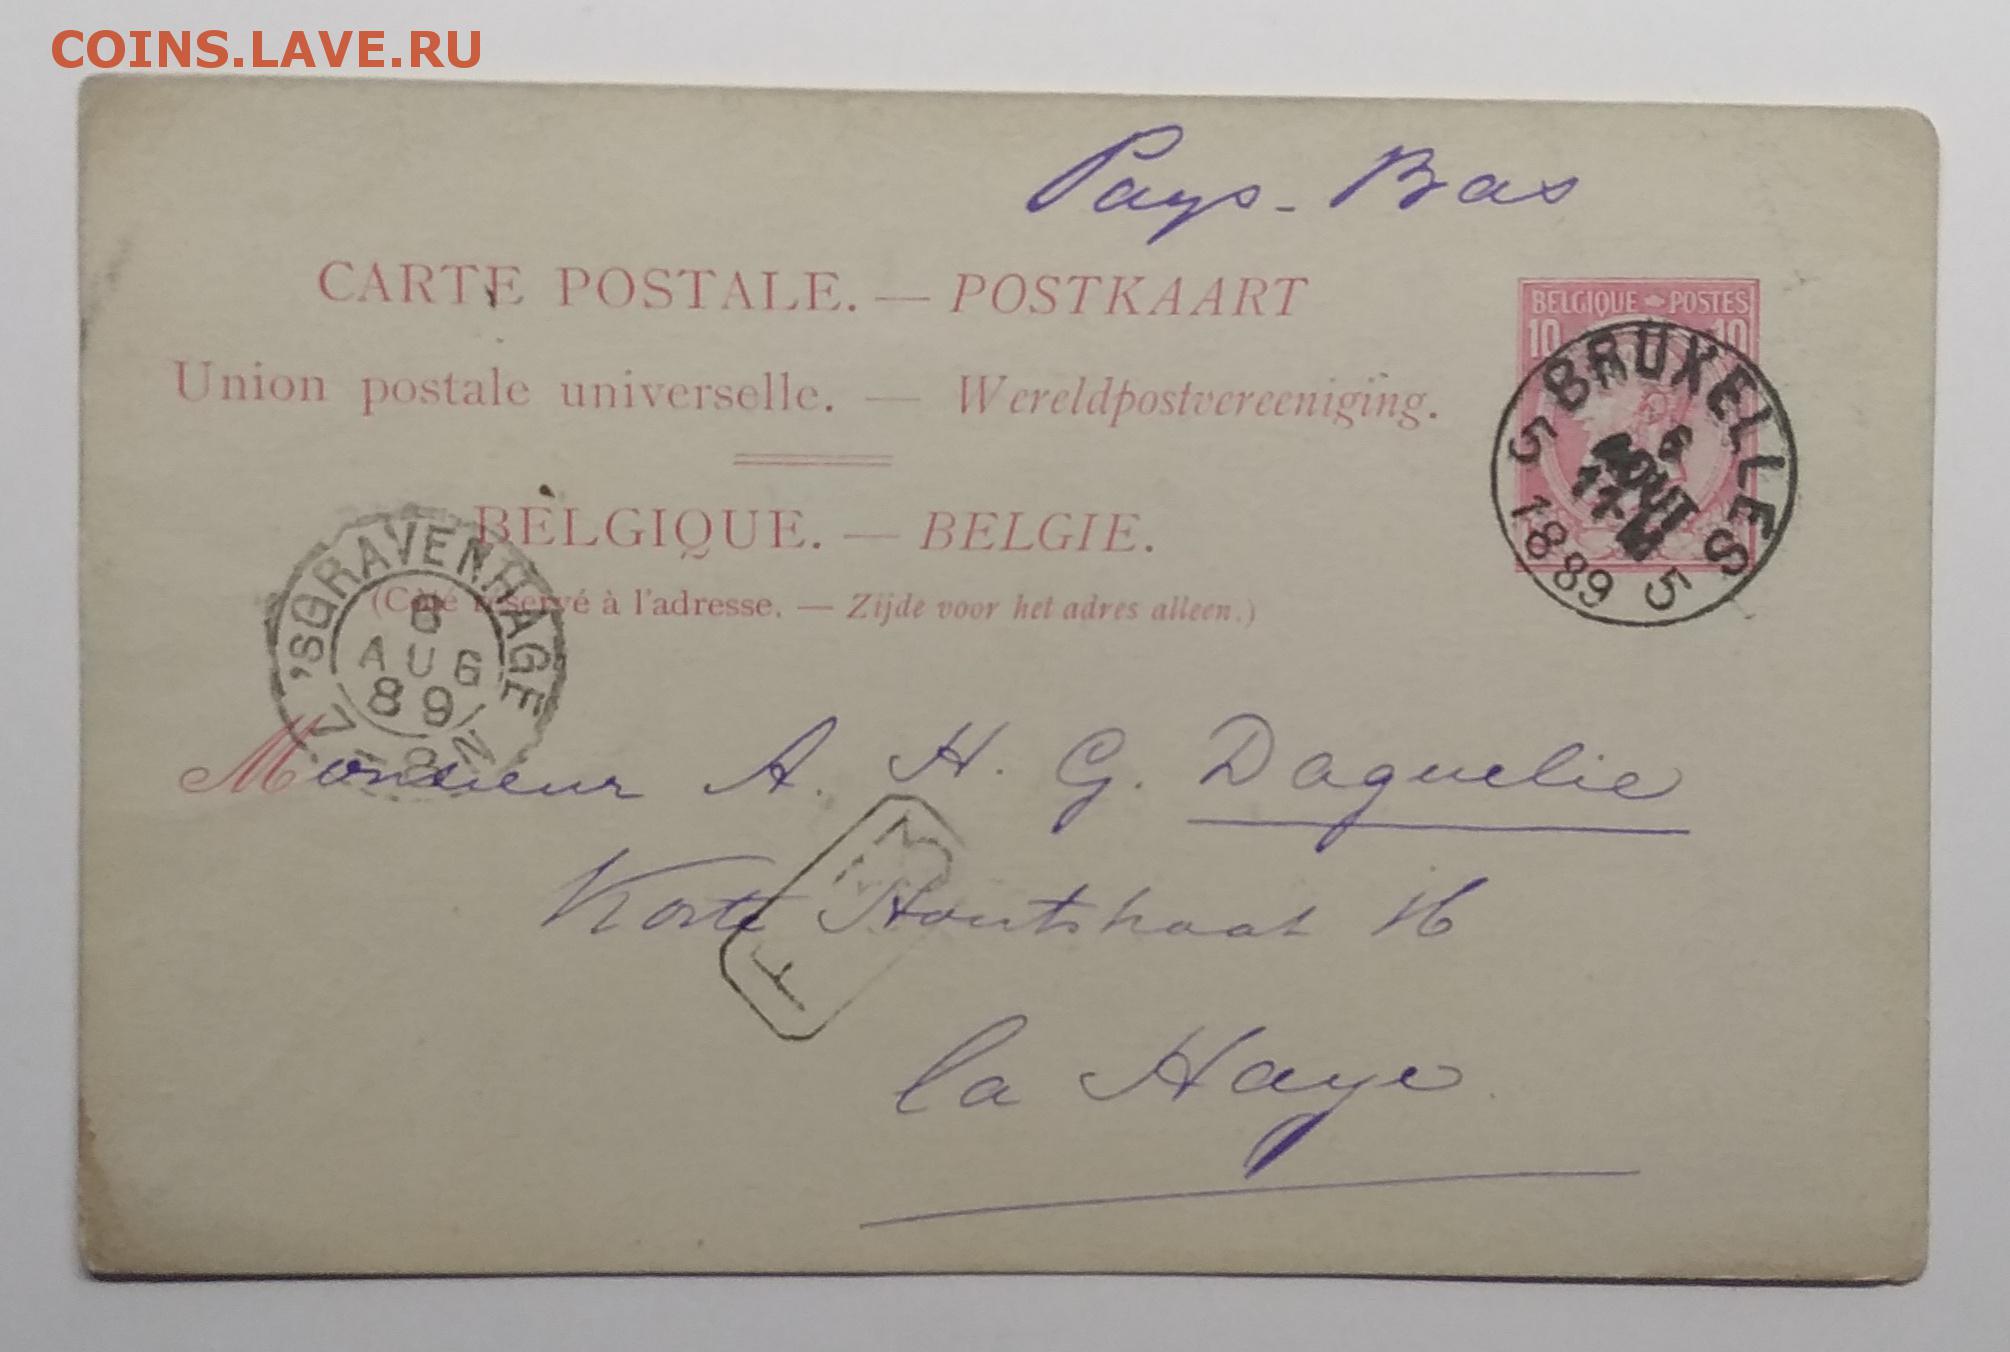 COINS.LAVE.RU
Pays-Bas
CARTE POSTALE. — POSTKAART
BELGIQUE POSTES
10 10
Union postale universelle. — Wereldpostvereeniging.
BRUXELLES
5 5
6
AOUT
1889
BELGIQUE. — BELGIE.
(Côté réservé à l'adresse. — Zijde voor het adres alleen.)
'SGRAVENHAGE
6
AUG
89
7-8N
Monsieur A. H. G. Daguelie
Korte Houtstraat 16
la Haye